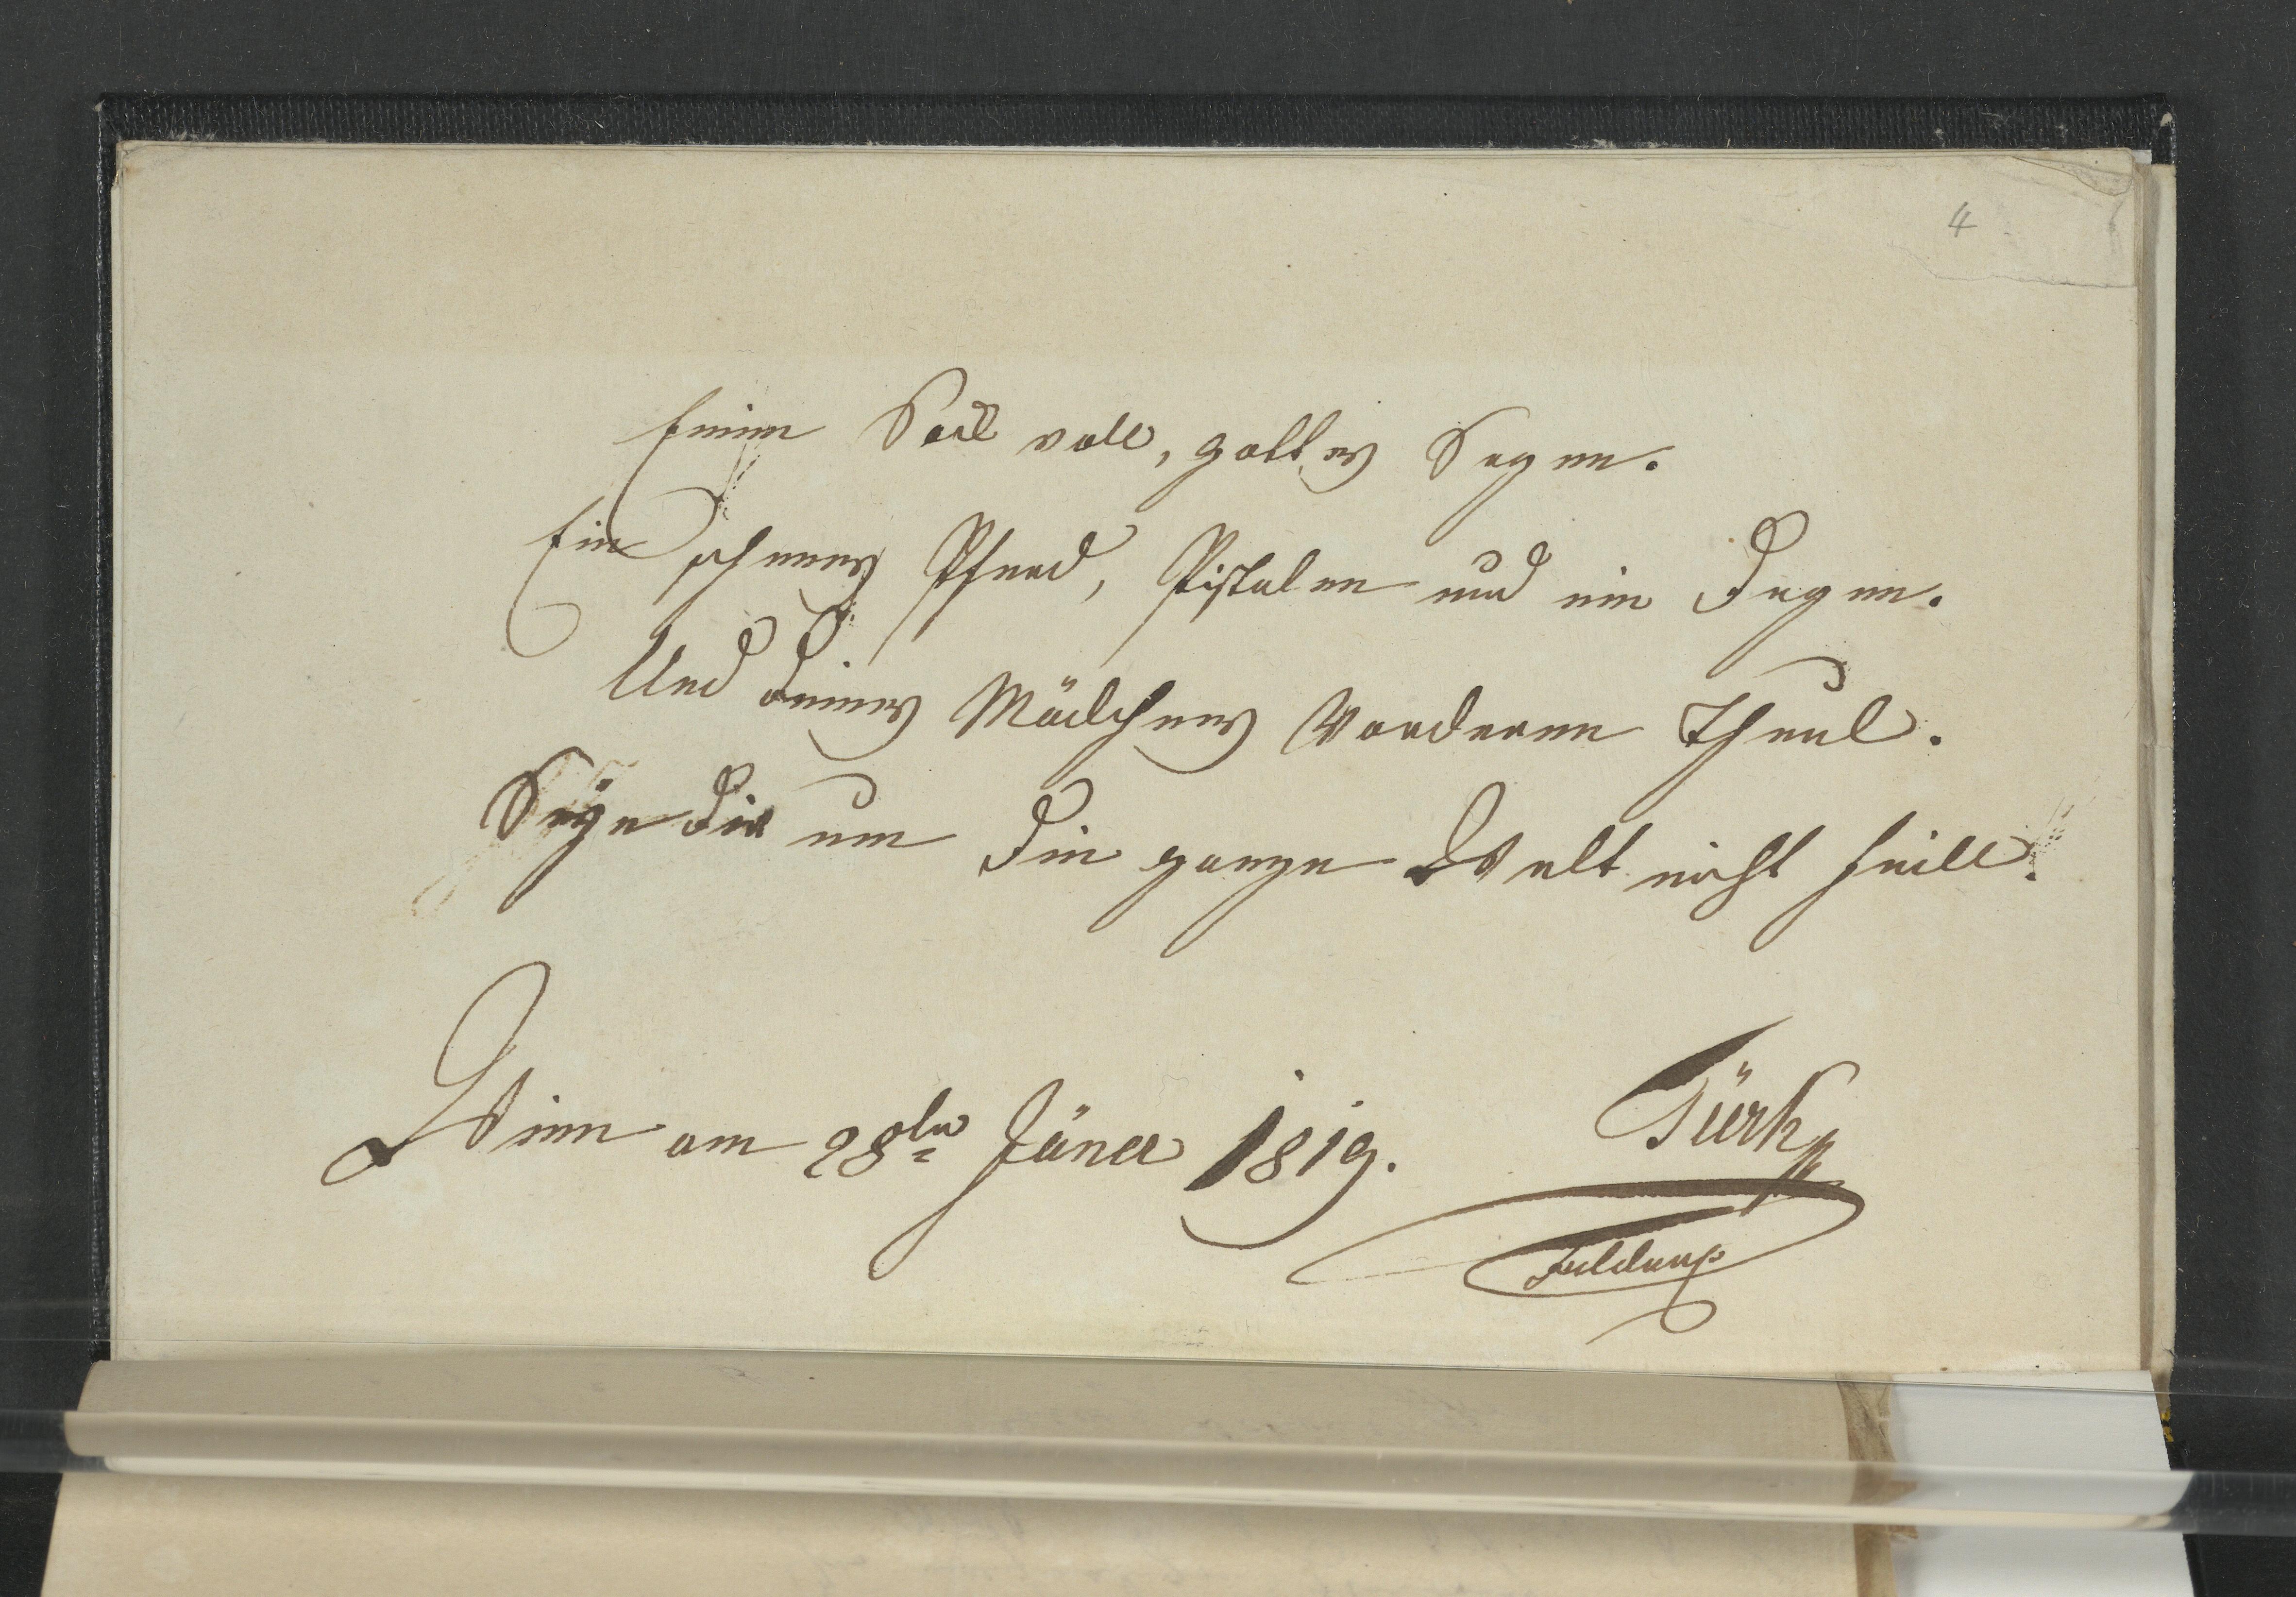 4
Einen Sack voll, gottes Segen.
Ein schenes Pferd, Pistolen und ein Degen.
Und deines Mädchens Vorderen Theul.
Seye dir um die ganze Welt nicht feill.
Wien am 28ten Jäner 1819.
Türk